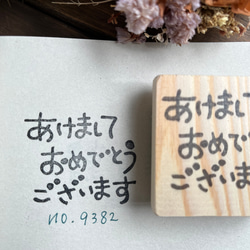 あけまして
おめでとう
ございます
no. 9382
あけまして
おめでとう
ございます